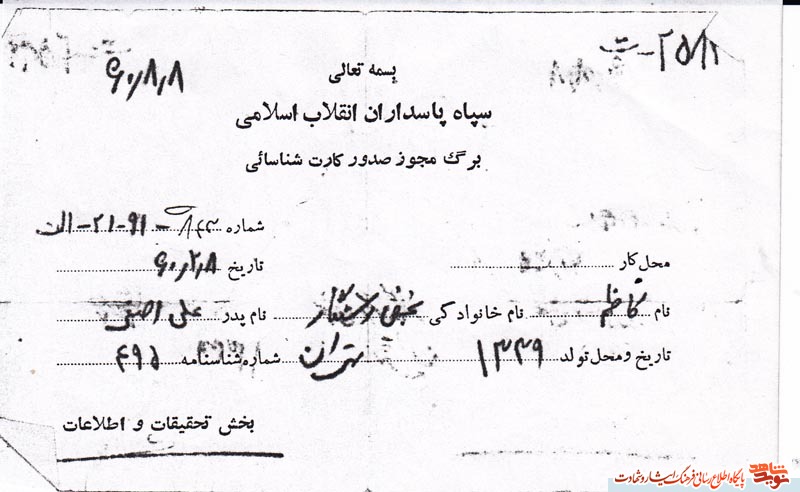 ۲۵۸۲-ت
۶۰٫۸٫۸
بسمه تعالی
سپاه پاسداران انقلاب اسلامی
برگ مجوز صدور کارت شناسائی
شماره ۹۱-۲۱-الف
تاریخ ۶۰٫۲٫۸
محل کار
نام کاظم نام خانوادگی نجفی رستگار نام پدر علی اصغر
تاریخ و محل تولد ۱۳۳۹ تهران شماره شناسنامه ۴۹۵
بخش تحقیقات و اطلاعات
نوید شاهد پایگاه اطلاع رسانی فرهنگ ایثار و شهادت